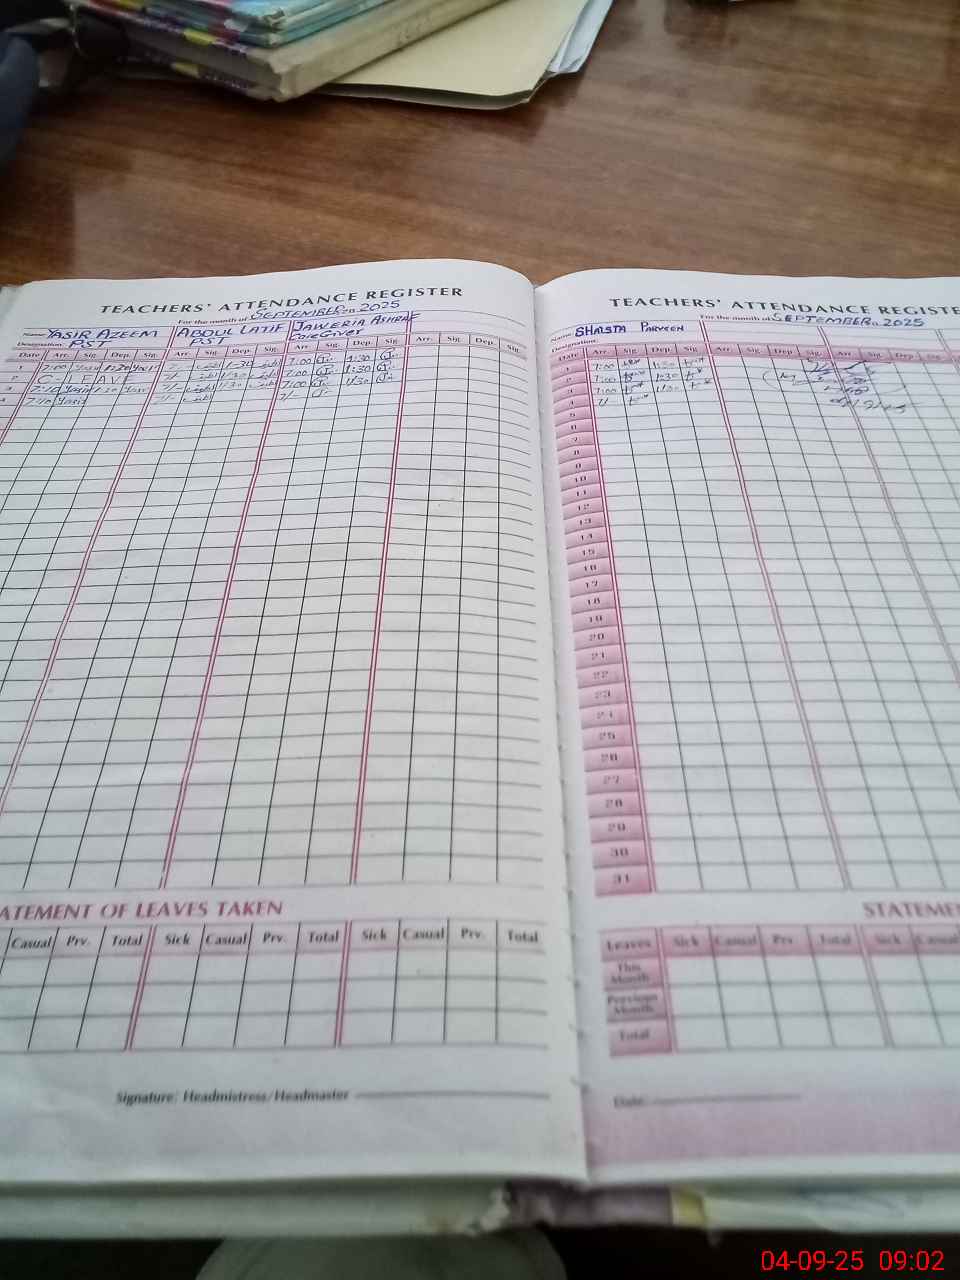 TEACHERS' ATTENDANCE REGISTER
For the month of SEPTEMBER 2025
Name: YASIR AZEEM ABDUL LATIF JAWERIA ASHRAF
Designation: PST PST CareGiver
Date Arr. Sig. Dep. Sig. Arr. Sig. Dep. Sig. Arr. Sig. Dep. Sig. Arr. Sig. Dep. Sig.
1 7:00 Yasir 1:30 Yasir 1:30 7:00 1:30
2 C LEAVE 1:30 7:00 1:30
3 Yasir 1:30 7:00 1:30
4 7:10 Yasir
STATEMENT OF LEAVES TAKEN
Casual Prv. Total Sick Casual Prv. Total Sick Casual Prv. Total
Signature: Headmistress/Headmaster
TEACHERS' ATTENDANCE REGISTER
For the month of SEPTEMBER 2025
Name: SHAISTA PARVEEN
Designation:
Date Arr. Sig. Dep. Sig. Arr. Sig. Dep. Sig. Arr. Sig. Dep. Sig.
1 7:00 1:30
2 7:00 1:30
3 7:00 1:30
4
5
6
7
8
9
10
11
12
13
14
15
16
17
18
19
20
21
22
23
24
25
26
27
28
29
30
31
STATEMEN
Leaves Sick Casual Prv. Total Sick Casual
This Month
Previous Month
Total
Date:
04-09-25 09:02